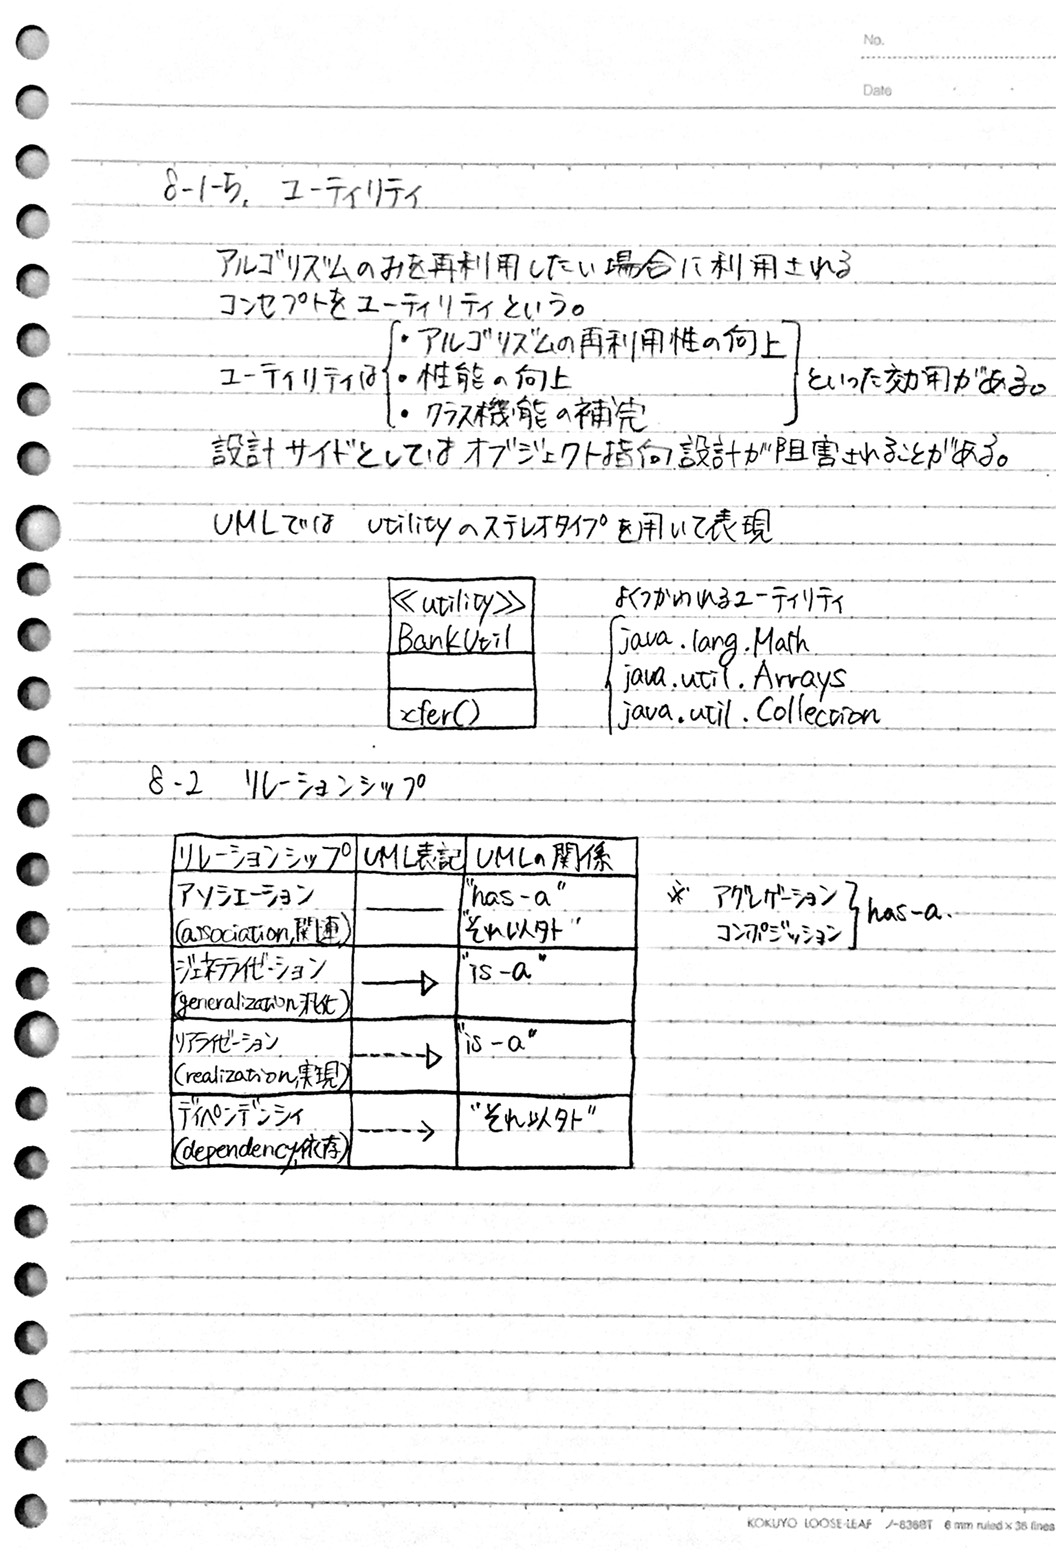 No.
Date
8-1-5. ユーティリティ
アルゴリズムのみを再利用したい場合に利用される
コンセプトをユーティリティという。
ユーティリティは
・アルゴリズムの再利用性の向上
・性能の向上
・クラス機能の補完
といった効用がある。
設計サイドとしてはオブジェクト指向設計が阻害されることがある。
UMLでは utilityのステレオタイプを用いて表現
≪utility≫
BankUtil
xfer()
よくつかわれるユーティリティ
java.lang.Math
java.util.Arrays
java.util.Collection
8-2 リレーションシップ
リレーションシップ UML表記 UMLの関係
アソシエーション "has-a"
(association,関連) "それ以外"
ジェネライゼーション "is-a"
(generalization,汎化)
リアライゼーション "is-a"
(realization,実現)
ディペンデンシィ "それ以外"
(dependency,依存)
※ アグレゲーション
コンポジッション
has-a.
KOKUYO LOOSE-LEAF ノ-836BT 6 mm ruled×36 lines